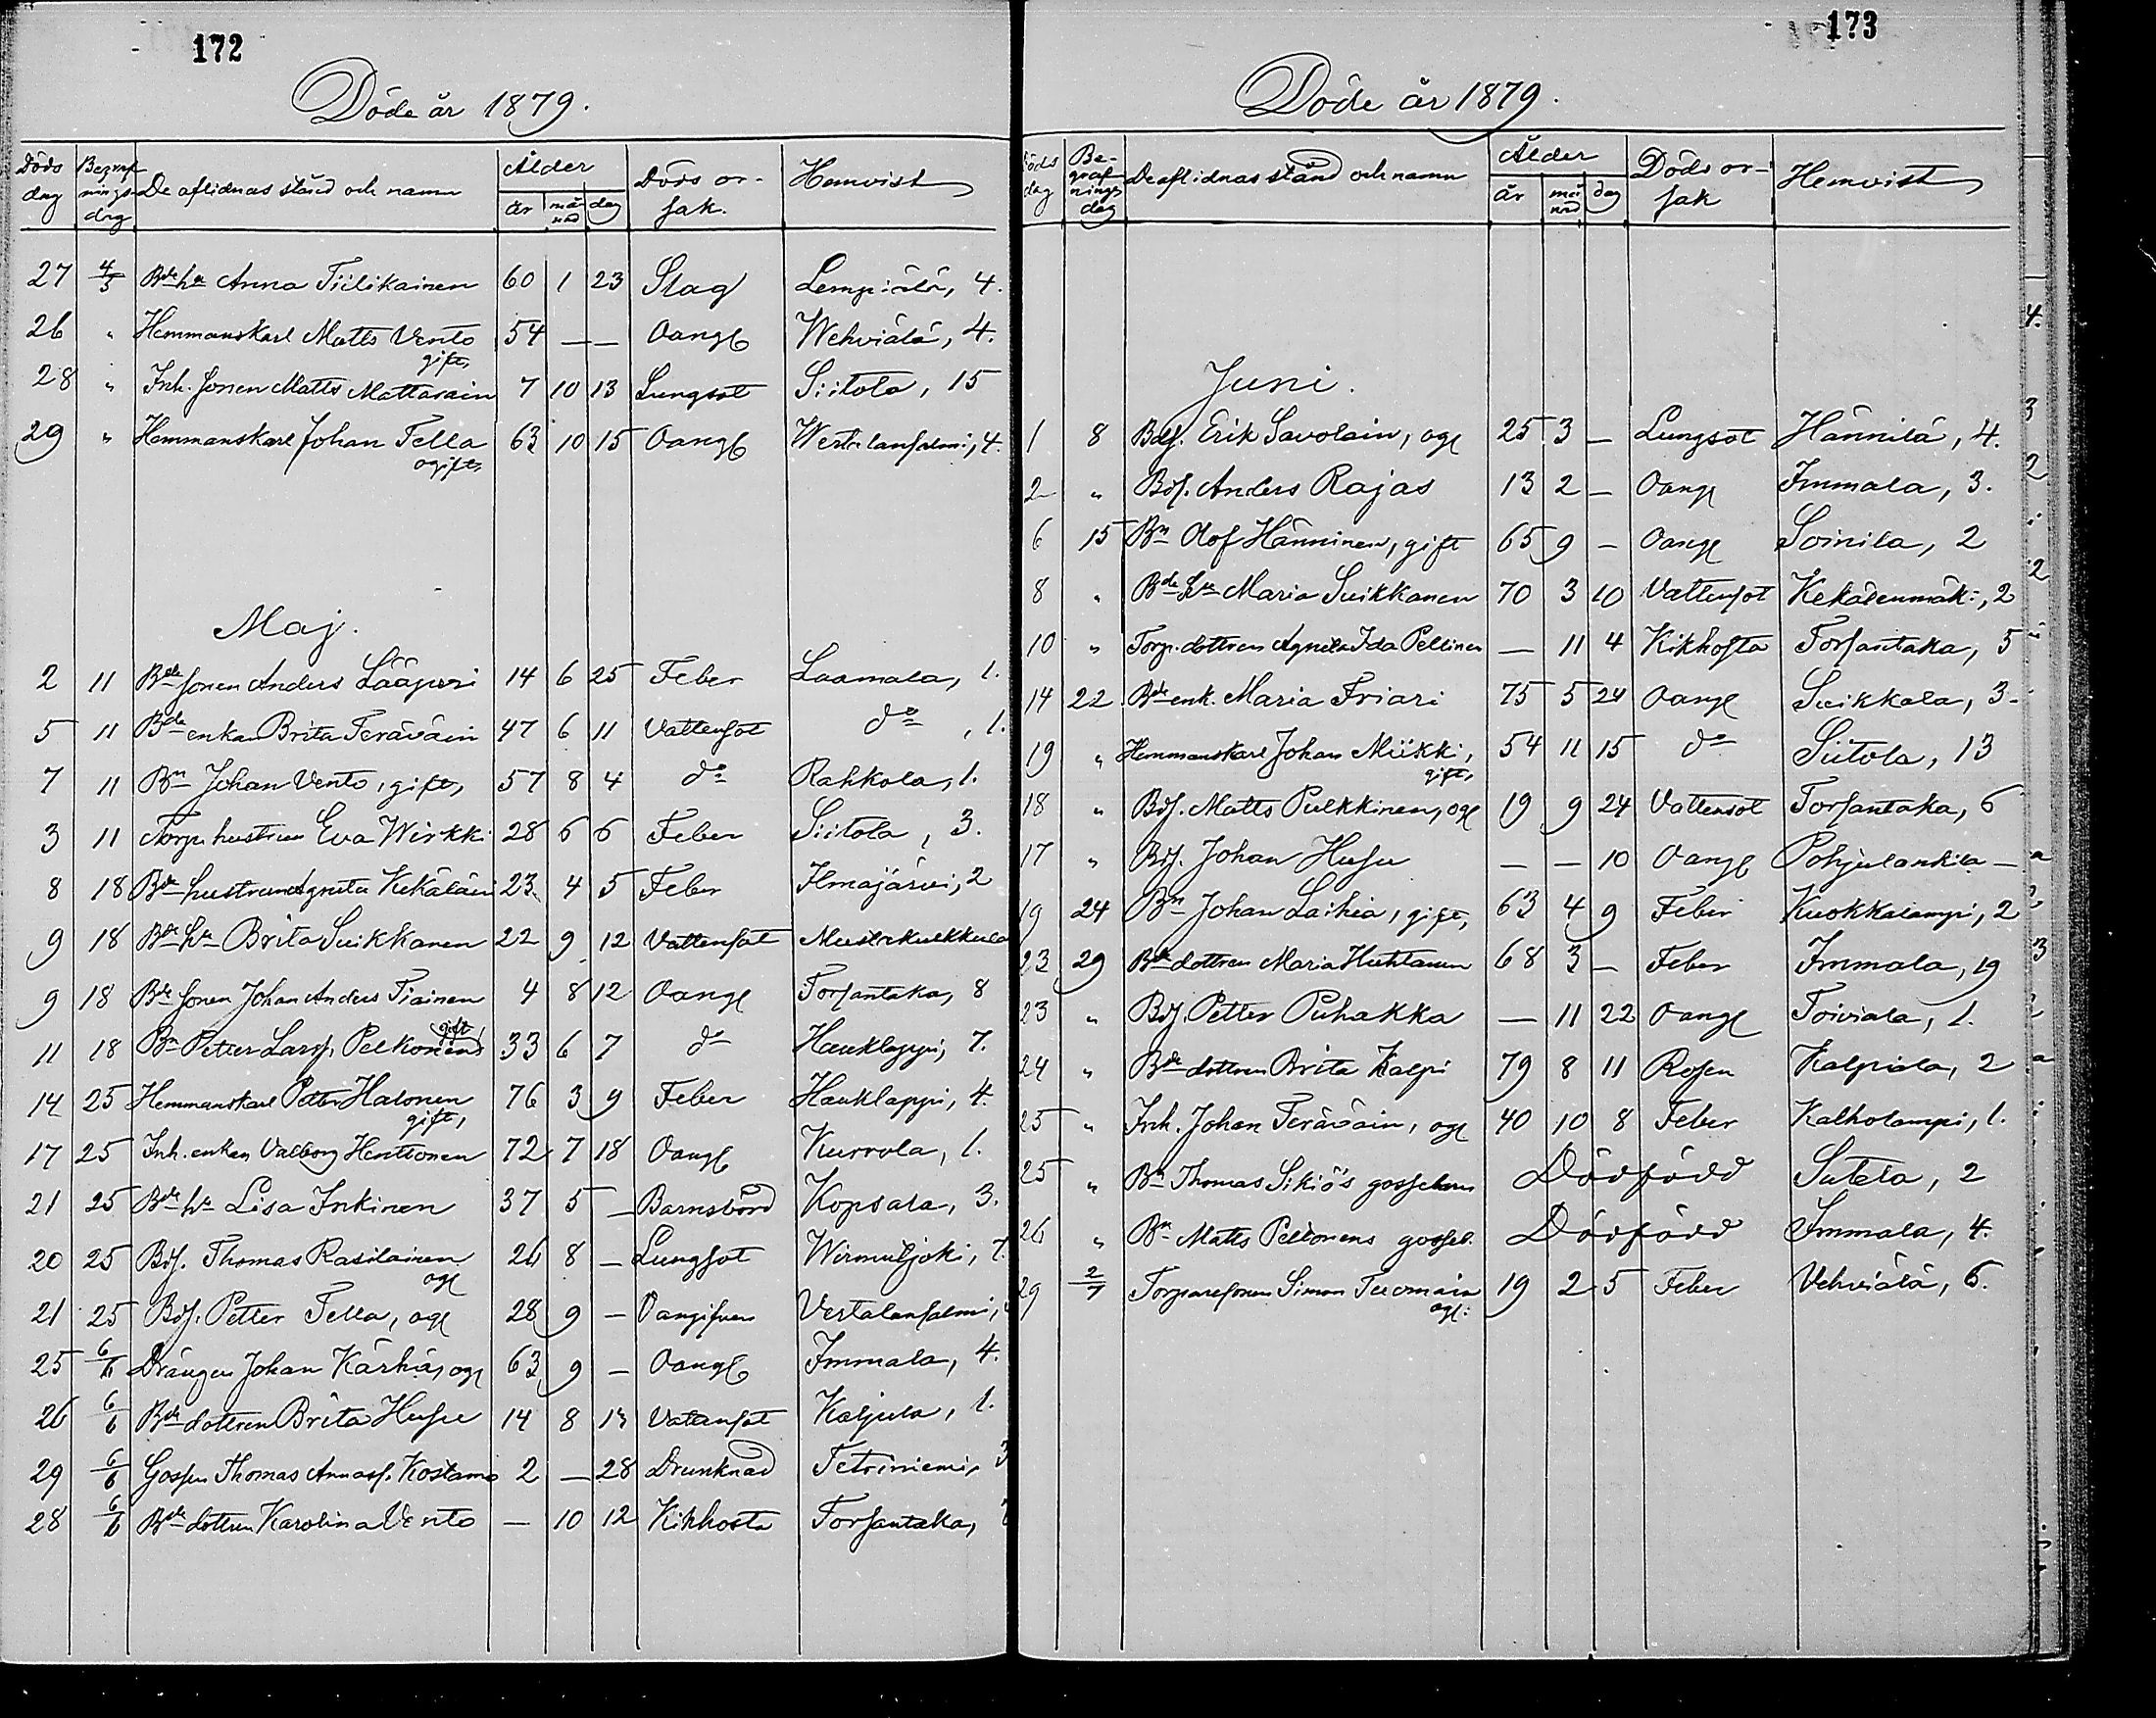 172
Döde år 1879.
Döds dag Begrafnings dag De aflidnas stånd och namn Ålder år månad dag Döds orsak. Hemvist
27 4/5 Bde hu Anna Tiilikainen 60 1 23 Slag Lempiälä, 4.
26 " Hemmanskarl Matts Vento 54 — — Oangf Wehviälä, 4.
gift,
28 " Inh. sonen Matts Mattarain 7 10 13 Lungsot Siitola, 15
29 " Hemmanskarl Johan Tella 63 10 15 Oangf Westalansalmi, 4.
ogift,
Maj.
2 11 Bde sonen Anders Lääperi 14 6 25 Feber Laamala, 1.
5 11 Bde enkan Brita Teräväin 47 6 11 Vattensot do , 1.
7 11 Bn Johan Vento, gift, 57 8 4 do Rahkola, 1.
3 11 Torp. hustrun Eva Wirkki 28 6 6 Feber Siitola, 3.
8 18 Bde hustrun Agneta Kekäläin 23 4 5 Feber Ilmajärwi, 2
9 18 Bde hu Brita Suikkanen 22 9 12 Vattensot Mustakukkula
9 18 Bde sonen Johan Anders Tiainen 4 8 12 Oangf Torsantaka, 8
11 18 Bn Petter Larsf. Pelkonen gift 33 6 7 do Hauklappi, 7.
14 25 Hemmanskarl Petter Halonen 76 3 9 Feber Hauklappi, 4.
gift,
17 25 Inh. enkan Valborg Henttonen 72 7 18 Oangf Kurrola, 1.
21 25 Bde hu Lisa Inkinen 37 5 — Barnsbörd Kopsala, 3.
20 25 Bdf. Thomas Rasilainen 26 8 — Lungsot Wirmutjoki, 7.
ogf
21 25 Bdf. Petter Tella, ogf 28 9 — Oangifven Vestalansalmi,
25 6/6 Drängen Johan Kärhä, ogf 63 9 — Oangf Immala, 4.
26 6/6 Bde dottren Brita Husu 14 8 13 Vattensot Kaljula, 1.
29 6/6 Gossen Thomas Annasf. Kostamo 2 — 28 Drunknad Tetriniemi, 3
28 6/6 Bde dottren Karolina Vento — 10 12 Kikhosta Torsantaka,
173
Döde år 1879.
Döds dag Begrafnings dag De aflidnas stånd och namn Ålder år månad dag Döds orsak Hemvist
Juni.
1 8 Bdf. Erik Savolain, ogf 25 3 — Lungsot Hännilä, 4.
2 " Bdf. Anders Rajas 13 2 — Oangf Immala, 3.
6 15 Bn Olof Hänninen, gift 65 9 — Oangf Soinila, 2
8 " Bde hu Maria Suikkanen 70 3 10 Vattensot Kekäleenmäki, 2
10 " Torp. dottren Agneta Ida Pellinen — 11 4 Kikhosta Torsantaka, 5
14 22 Bde enk. Maria Friari 75 5 24 Oangf Suikkala, 3.
19 " Hemmanskarl Johan Miikki, 54 11 15 do Siitola, 13
gift,
18 " Bdf. Matts Pulkkinen, ogf 19 9 24 Vattensot Torsantaka, 6
17 " Bdf. Johan Husu — — 10 Oangf Pohjalankila —
19 24 Bn Johan Laihia, gift, 63 4 9 Feber Kuokkalampi, 2
23 29 Bde dottren Maria Huhtanen 68 3 — Feber Immala, 19
23 " Bdf. Petter Puhakka — 11 22 Oangf Toiviala, 1.
24 " Bde dottren Brita Kalpi 79 8 11 Rosen Kalpiala, 2
25 " Inh. Johan Teräväin, ogf 40 10 8 Feber Kalholampi, 1.
25 " Bn Thomas Sikiö's gossebarn Dödfödd Sutela, 2
26 " Bn Matts Peltonens gosseb. Dödfödd Immala, 4.
29 2/7 Torparesonen Simon Tuomain 19 2 5 Feber Vehviälä, 6.
ogf: